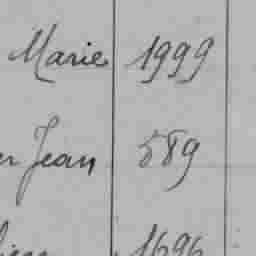 Marie 1999
er Jean 589
1696